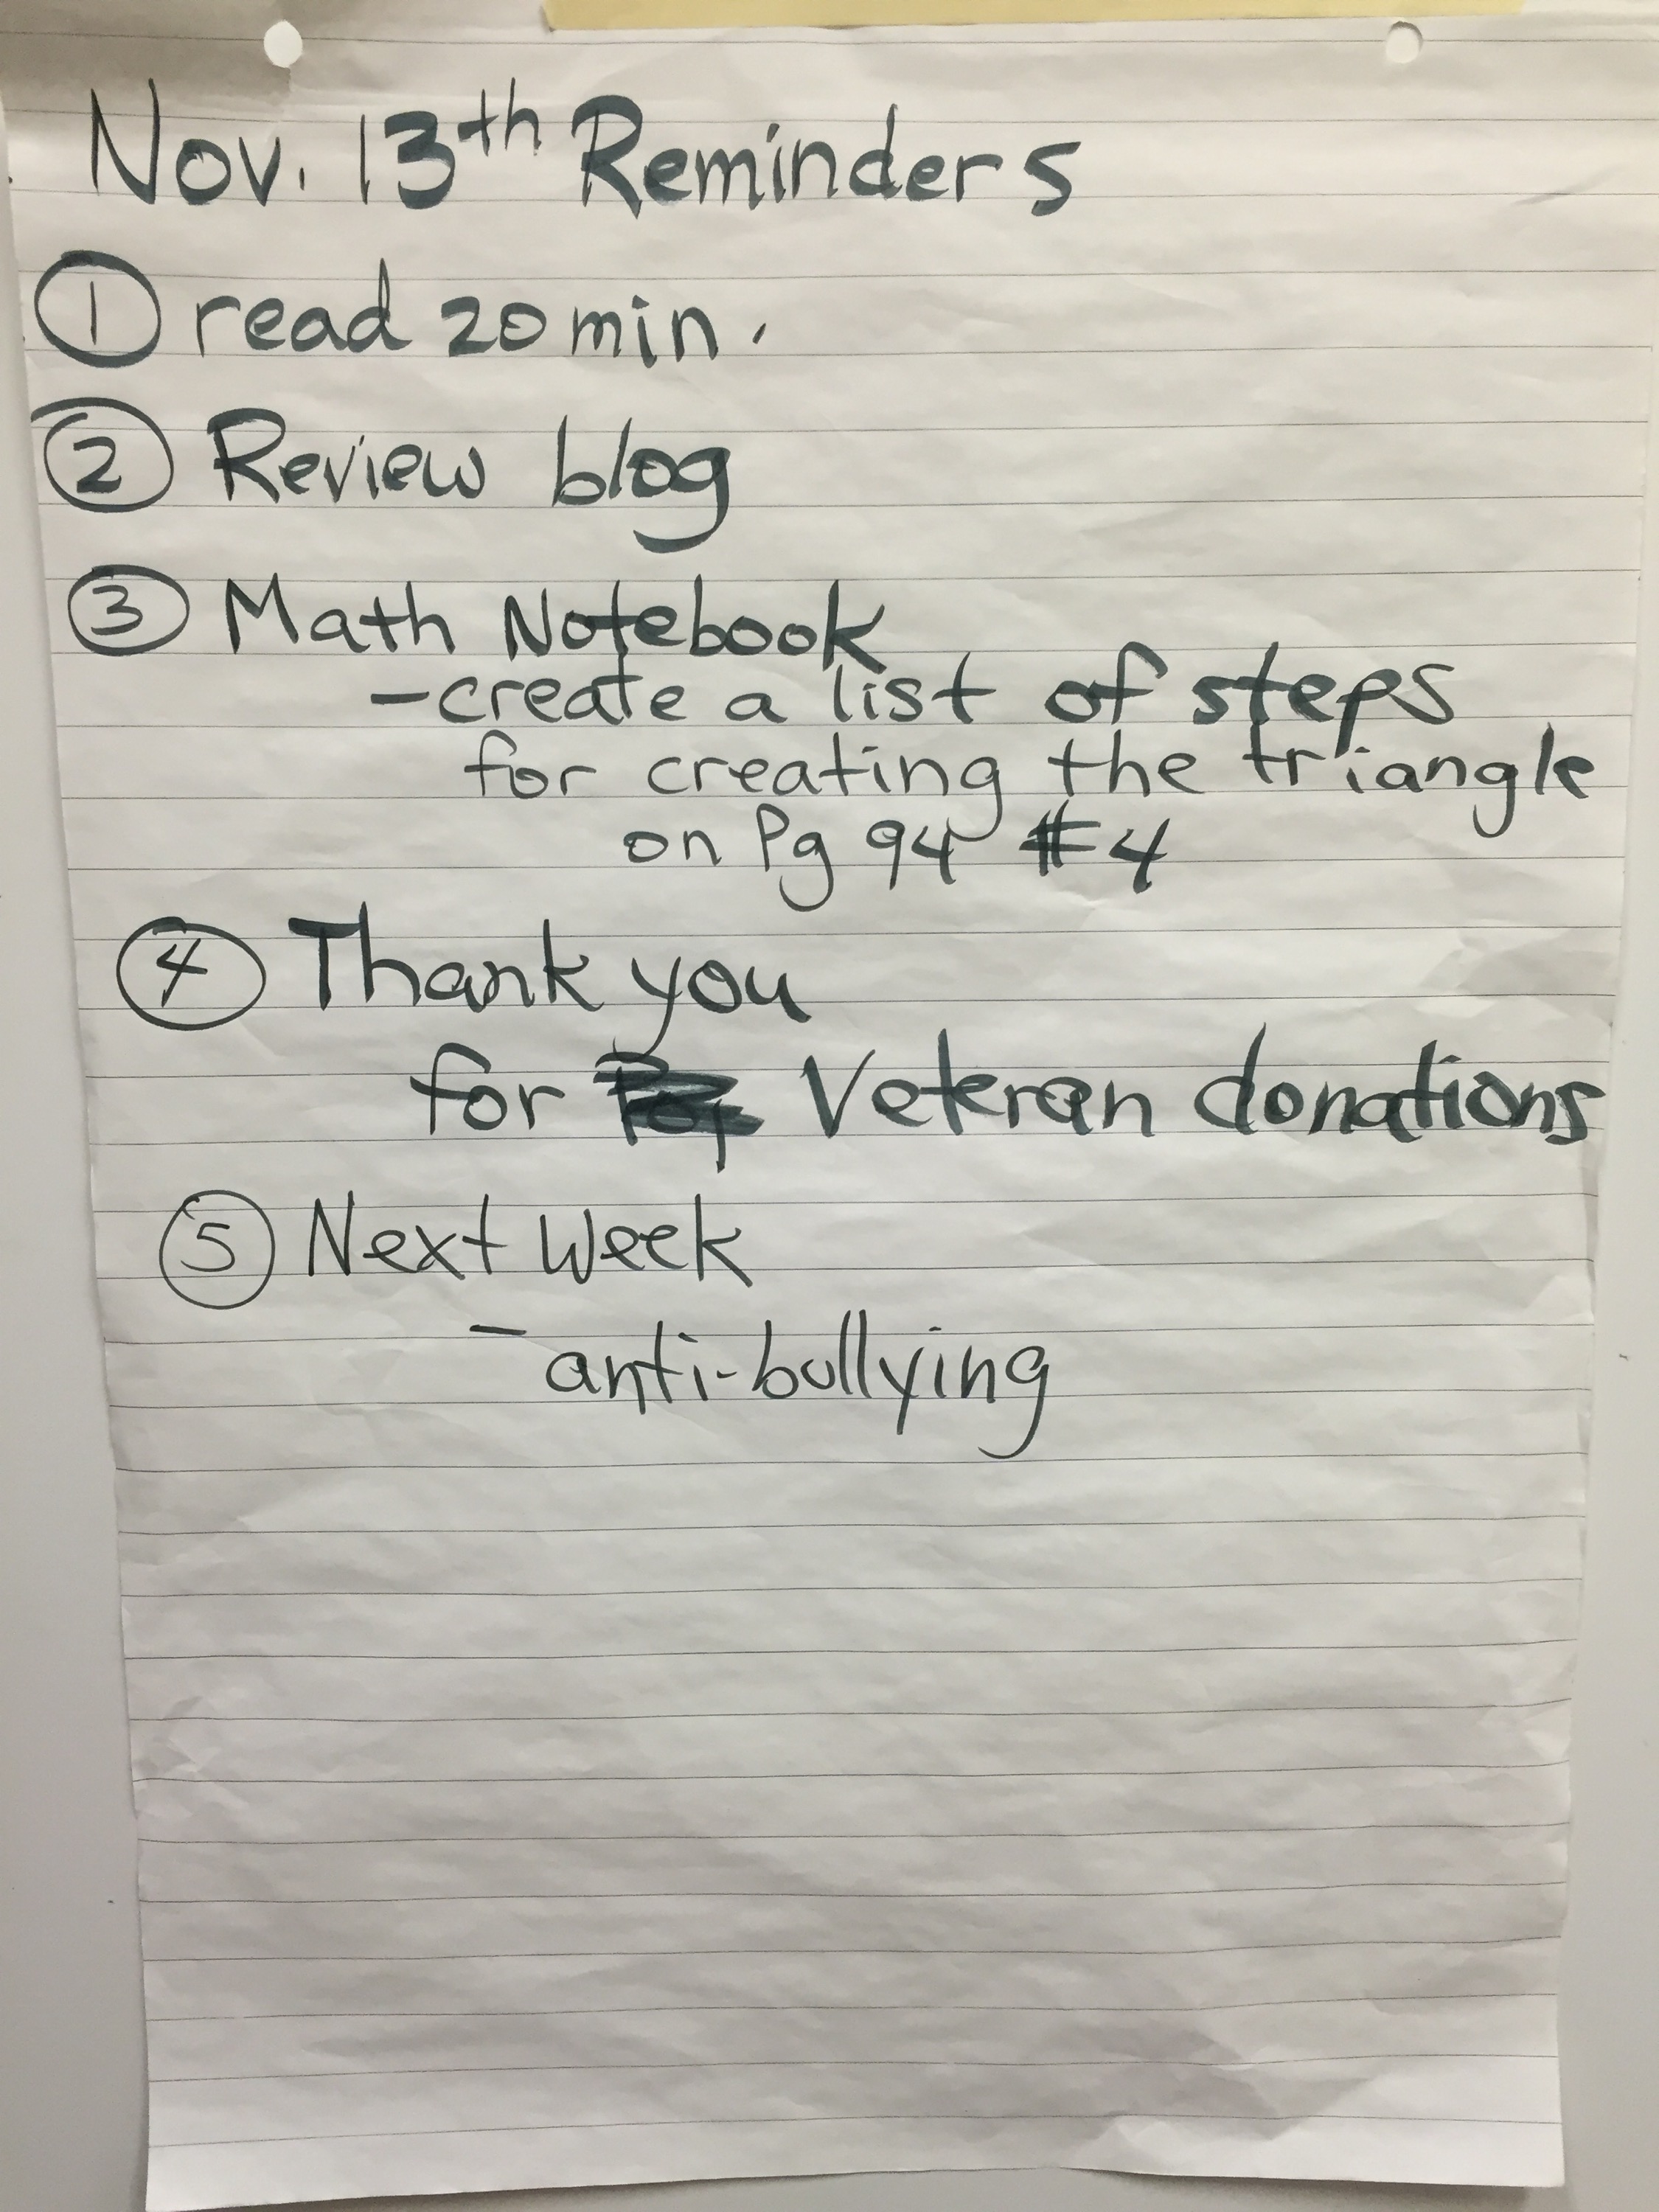 Nov. 13th Reminders
① read 20 min.
② Review blog
③ Math Notebook
- create a list of steps
for creating the triangle
on Pg 94 #4
④ Thank you
for Veteran donations
⑤ Next Week
- anti-bullying